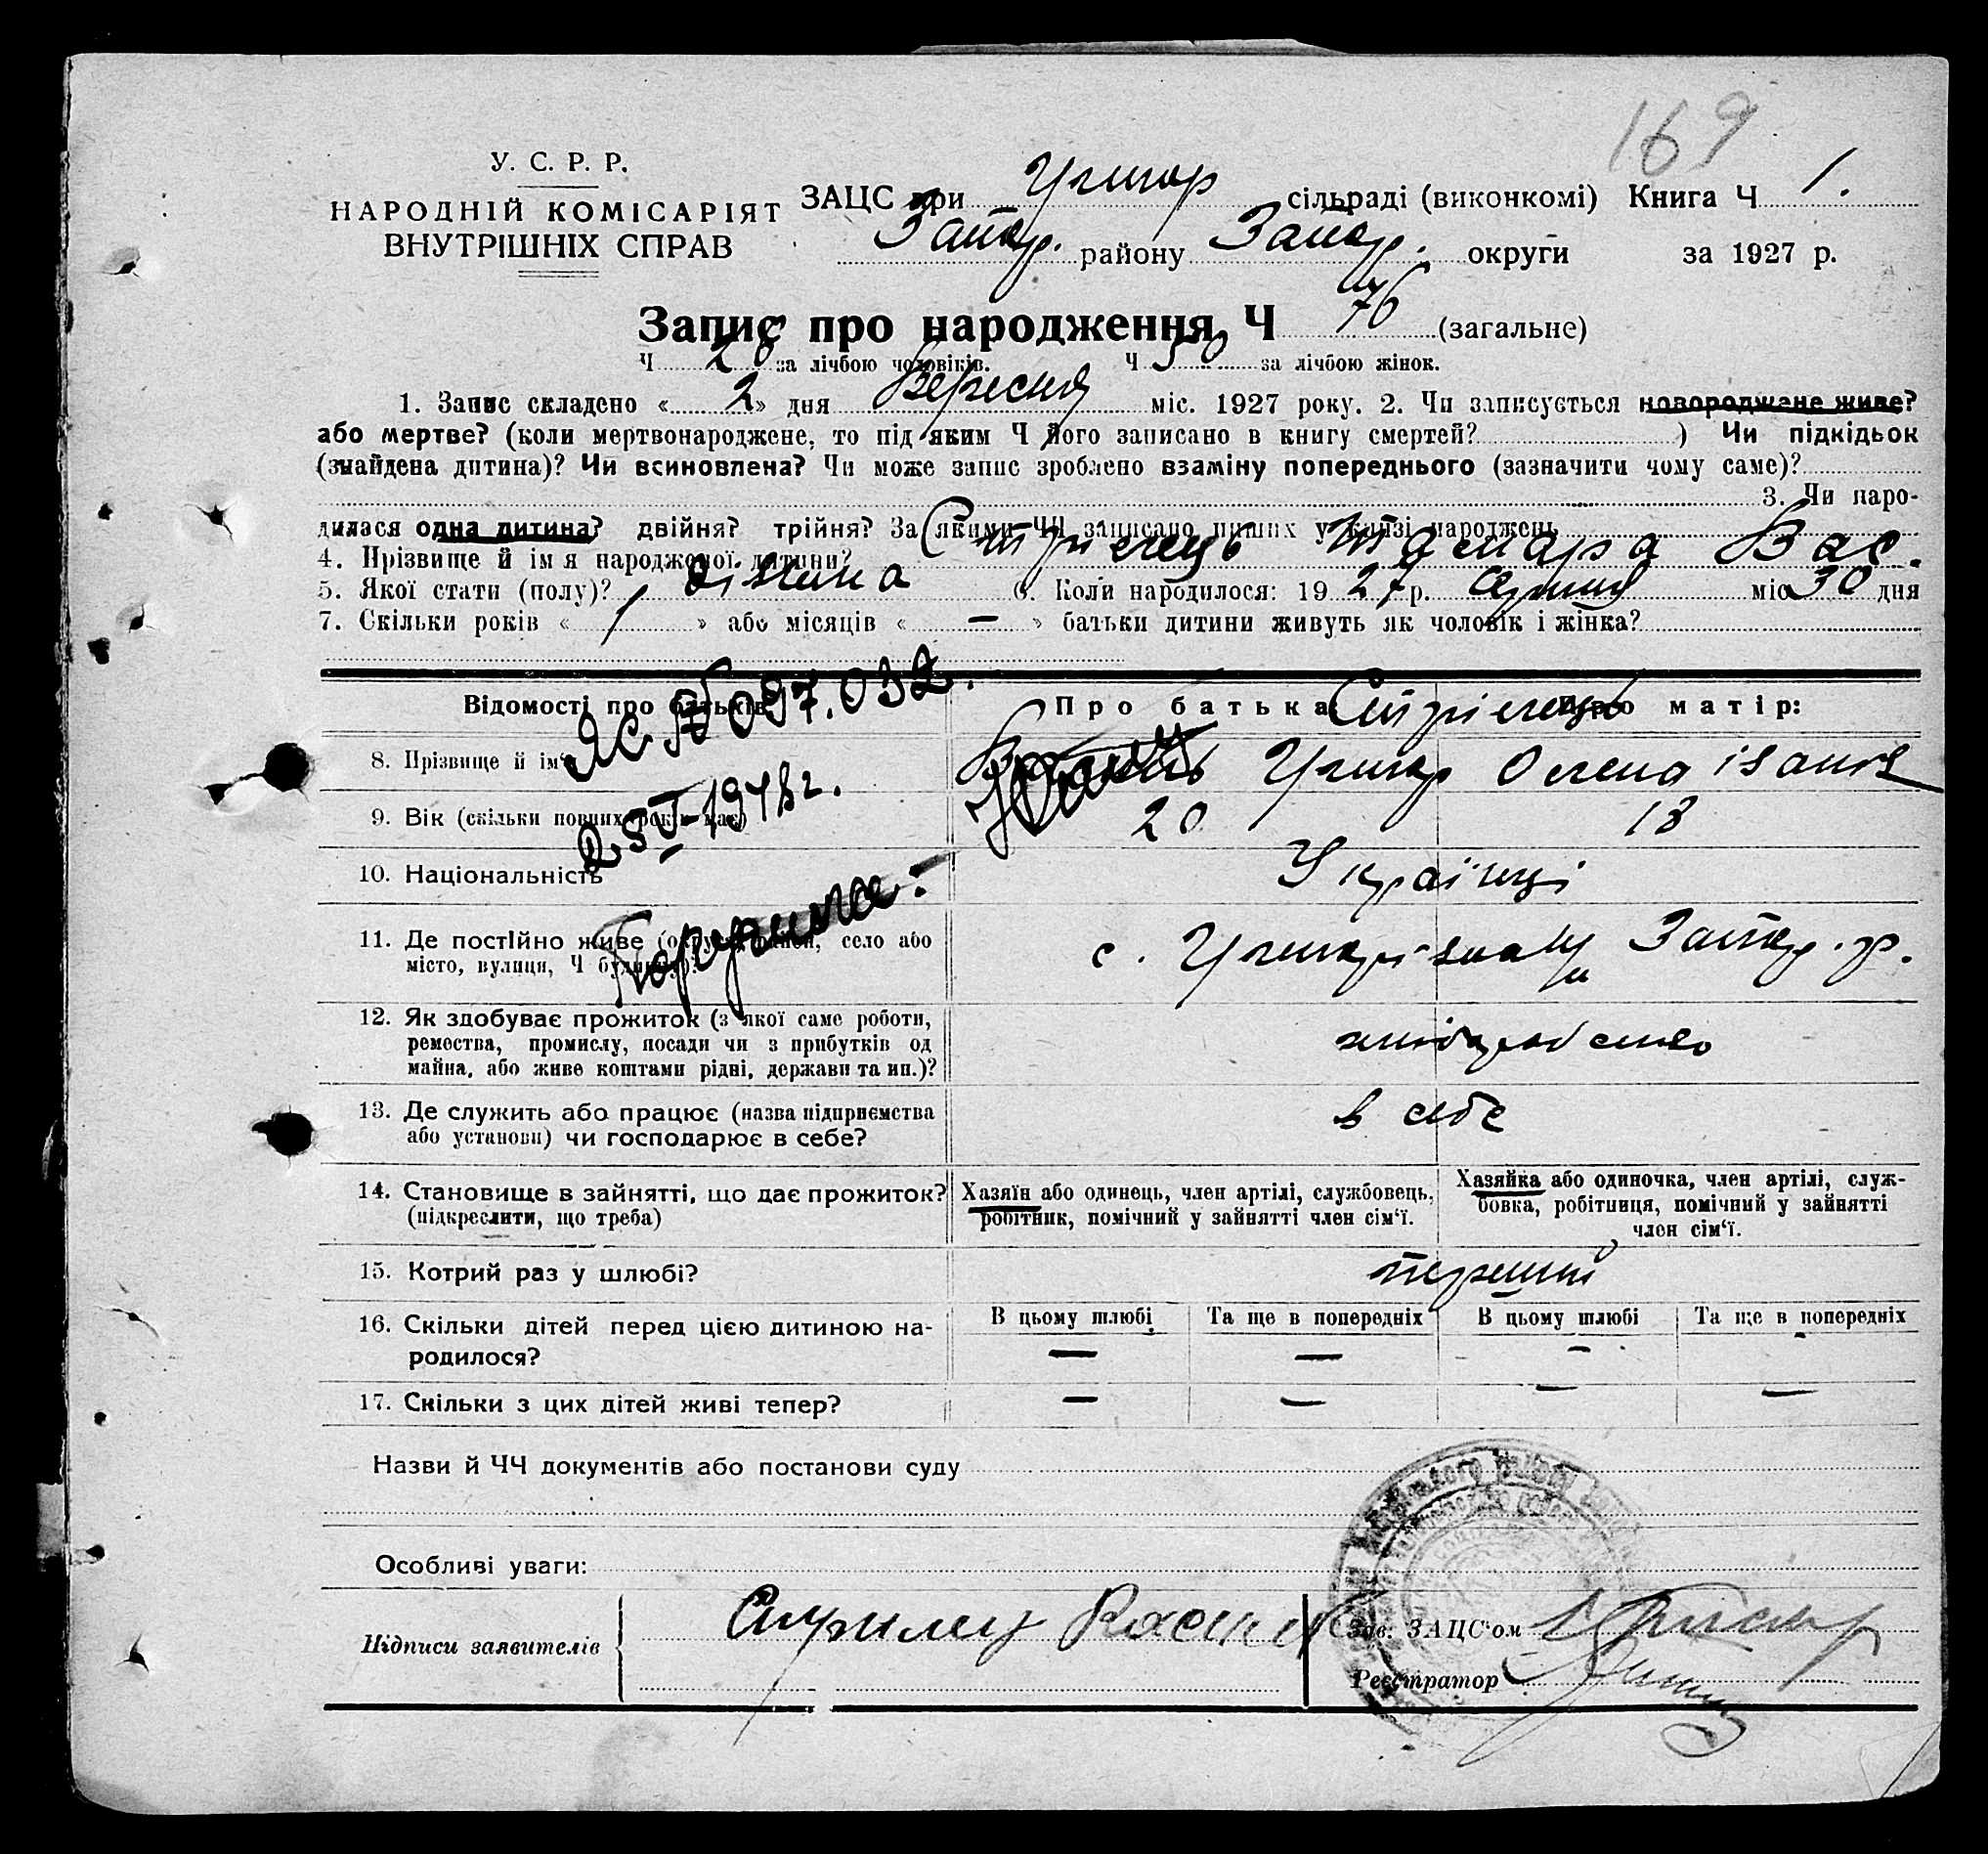 169
У. С. Р. Р.
НАРОДНІЙ КОМІСАРІЯТ
ВНУТРІШНІХ СПРАВ
ЗАЦС при Григор сільраді (виконкомі) Книга Ч 1.
Запор. району Запор. округи за 1927 р.
Запис про народження, Ч 76 (загальне)
Ч 26 за лічбою чоловіків. Ч 50 за лічбою жінок.
1. Запис складено « 2 » дня Вересня міс. 1927 року. 2. Чи записується новороджене живе?
або мертве? (коли мертвонароджене, то під яким Ч його записано в книгу смертей? ) Чи підкідьок
(знайдена дитина)? Чи всиновлена? Чи може запис зроблено взаміну попереднього (зазначити чому саме)?
3. Чи наро-
дилася одна дитина? двійня? трійня? За якими ЧЧ записано инших у книзі народжень
4. Прізвище й ім я народженої дитини? Стрілець Тамара Вас.
5. Якої стати (полу)? жіноча 6. Коли народилося: 19 27 р. серпня міс 30 дня
7. Скільки років « 1 » або місяців « — » батьки дитини живуть як чоловік і жінка?
Відомості про батьків Про батька Про матір:
ЯС № 097.032.
Стрілець
8. Прізвище й ім'я Григор Олена Іванів
2 5/V-1948 г.
9. Вік (скільки повних років має) 20 18
10. Національність Українці
11. Де постійно живе (округа, район, село або
місто, вулиця, Ч будинку)? с. Григорівка Запор. р.
12. Як здобуває прожиток (з якої саме роботи,
ремества, промислу, посади чи з прибутків од
майна, або живе коштами рідні, держави та ин.)? хліборобство
13. Де служить або працює (назва підприємства
або установи) чи господарює в себе? в себе
14. Становище в зайнятті, що дає прожиток?
(підкреслити, що треба)
Хазяїн або одинець, член артілі, службовець,
робітник, помічний у зайнятті член сім‘ї.
Хазяйка або одиночка, член артілі, служ-
бовка, робітниця, помічний у зайнятті
член сім‘ї.
15. Котрий раз у шлюбі? перший
В цьому шлюбі Та ще в попередніх В цьому шлюбі Та ще в попередніх
16. Скільки дітей перед цією дитиною на-
родилося? — — — —
17. Скільки з цих дітей живі тепер? — — — —
Назви й ЧЧ документів або постанови суду
Особливі уваги:
Підписи заявителів
Зав. ЗАЦС‘ом
Реєстратор